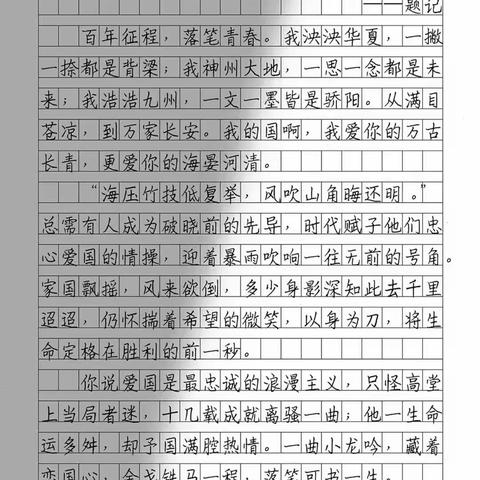 ——题记
百年征程，落笔青春。我泱泱华夏，一撇
一捺都是脊梁；我神州大地，一思一念都是未
来；我浩浩九州，一文一墨皆是骄阳。从满目
苍凉，到万家长安。我的国啊，我爱你的万古
长青，更爱你的海晏河清。
“海压竹技低复举，风吹山角晦还明。”
总需有人成为破晓前的先导，时代赋予他们忠
心爱国的情操，迎着暴雨吹响一往无前的号角。
家国飘摇，风来欲倒，多少身影深知此去千里
迢迢，仍怀揣着希望的微笑，以身为刀，将生
命定格在胜利的前一秒。
你说爱国是最忠诚的浪漫主义，只怪高堂
上当局者迷，十几载成就离骚一曲；他一生命
运多舛，却予国满腔热情。一曲小龙吟，藏着
恋国心，金戈铁马一程，落笔可书一生。